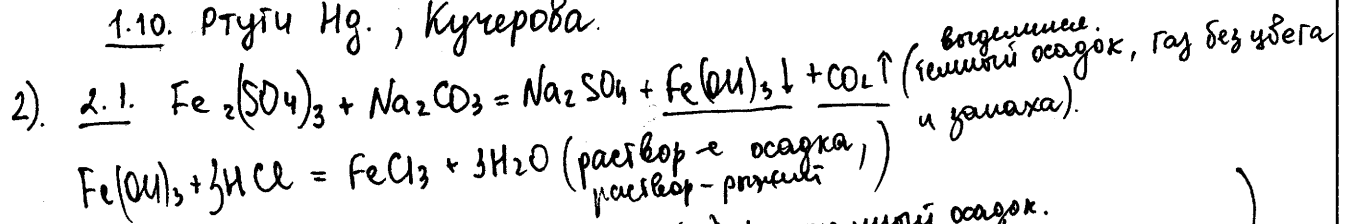 1.10. Ртути Hg., Кучерова.
2). 2.1. Fe2(SO4)3 + Na2CO3 = Na2SO4 + Fe(OH)3↓ + CO2↑ (темный осадок, газ без цвета
выделился.
и запаха).
Fe(OH)3 + 3HCl = FeCl3 + 3H2O (раствор-е осадка,)
раствор-рыжий
осадок.